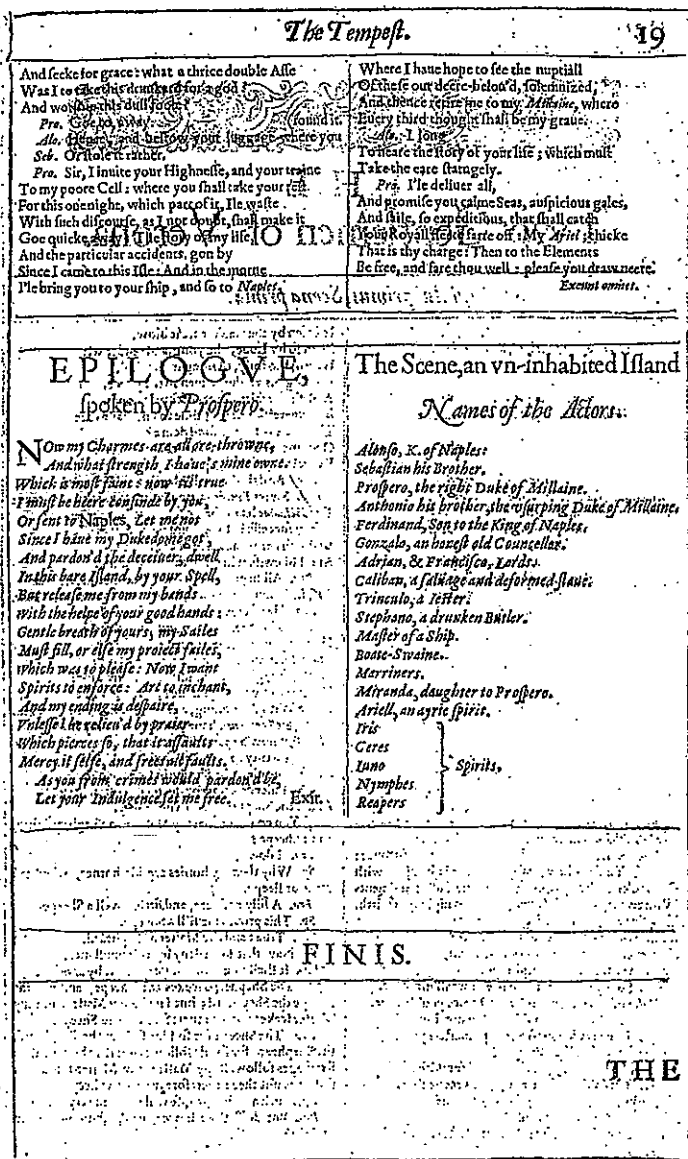 The Tempeſt.
19
And ſeeke for grace: what a thrice double Aſſe
Was I to take this drunkard for a god?
And worſhip this dull foole?
Pro. Goe to, away. found it.
Alo. Hence, and beſtow your luggage where you
Seb. Or ſtole it rather.
Pro. Sir, I inuite your Highneſſe, and your traine
To my poore Cell: where you ſhall take your reſt
For this one night, which part of it, Ile waſte
With ſuch diſcourſe, as I not doubt, ſhall make it
Goe quicke away: The ſtory of my life,
And the particular accidents, gon by
Since I came to this Iſle: And in the morne
I'le bring you to your ſhip, and ſo to Naples,
Where I haue hope to ſee the nuptiall
Of theſe our deere-belou'd, ſolemnized,
And thence retire me to my Millaine, where
Euery third thought ſhall be my graue.
Alo. I long
To heare the ſtory of your life; which muſt
Take the eare ſtarngely.
Pro. I'le deliuer all,
And promiſe you calme Seas, auſpicious gales,
And ſaile, ſo expeditious, that ſhall catch
Your Royall fleete farre off: My Ariel; chicke
That is thy charge: Then to the Elements
Be free, and fare thou well: pleaſe you draw neere.
Exeunt omnes.
EPILOGVE,
ſpoken by Proſpero.
NOw my Charmes are all ore-throwne,
And what ſtrength I haue's mine owne.
Which is moſt faint: now 'tis true
I muſt be heere confinde by you,
Or ſent to Naples, Let me not
Since I haue my Dukedome got,
And pardon'd the deceiuer, dwell
In this bare Iſland, by your Spell,
But releaſe me from my bands
With the helpe of your good hands:
Gentle breath of yours, my Sailes
Muſt fill, or elſe my proiect failes,
Which was to pleaſe: Now I want
Spirits to enforce: Art to inchant,
And my ending is deſpaire,
Vnleſſe I be relieu'd by praier
Which pierces ſo, that it aſſaults
Mercy it ſelfe, and frees all faults.
As you from crimes would pardon'd be,
Let your Indulgence ſet me free. Exit.
The Scene, an vn-inhabited Iſland
Names of the Actors.
Alonſo, K. of Naples:
Sebaſtian his Brother.
Proſpero, the right Duke of Millaine.
Anthonio his brother, the vſurping Duke of Millaine.
Ferdinand, Son to the King of Naples.
Gonzalo, an honeſt old Councellor.
Adrian, & Franciſco, Lords.
Caliban, a ſaluage and deformed ſlaue.
Trinculo, a Ieſter.
Stephano, a drunken Butler.
Maſter of a Ship.
Boate-Swaine.
Marriners.
Miranda, daughter to Proſpero.
Ariell, an ayrie ſpirit.
Iris
Ceres
Iuno
Spirits.
Nymphes
Reapers
FINIS.
THE